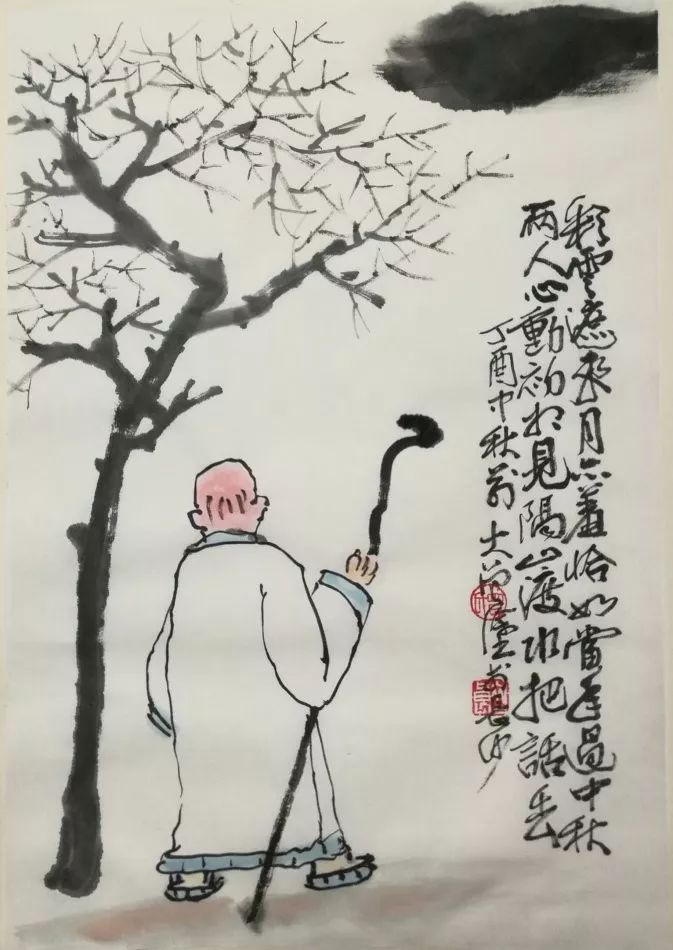 彩雲遮来月亦羞恰如當年過中秋
兩人心動初相見隔山渡水把話丢
丁酉中秋前大於長沙